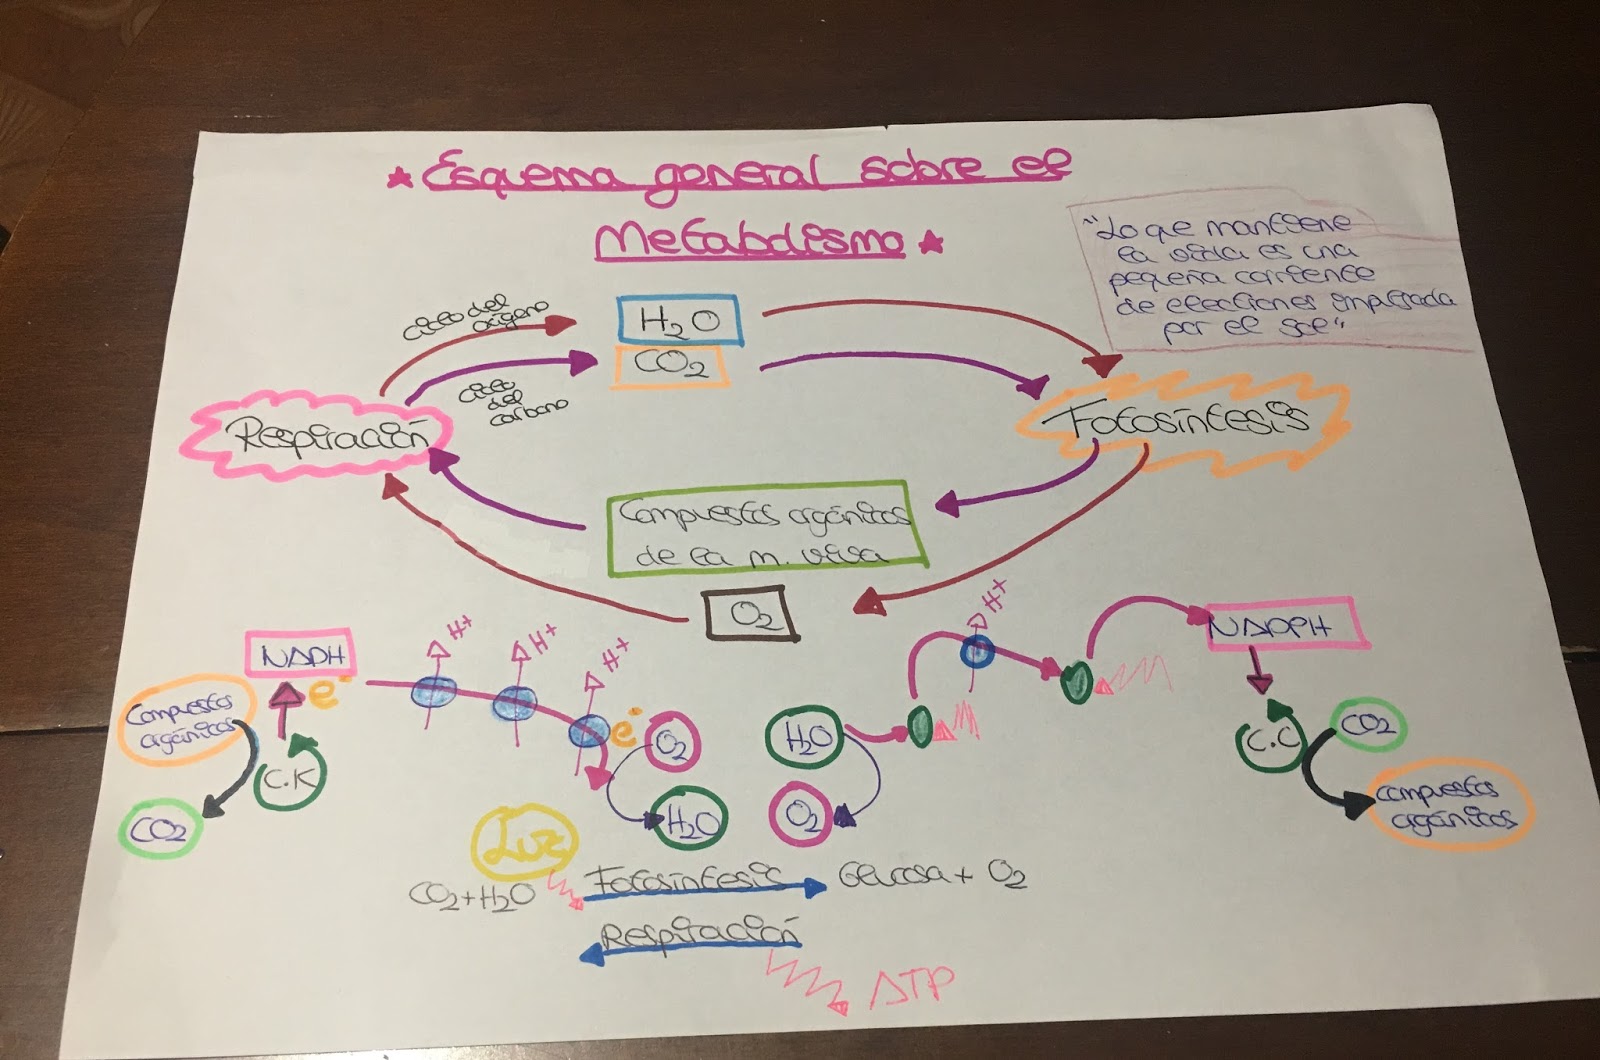 ★ Esquema general sobre el
Metabolismo ★
"Lo que mantiene
la vida es una
pequeña corriente
de electrones impulsada
por el sol"
ciclo del
oxígeno
H₂O
CO₂
ciclo
del
carbono
Respiración
Fotosíntesis
Compuestos orgánicos
de la m. viva
O₂
H+
H+
H+
H+
NADH
e⁻
NADPH
Compuestos
orgánicos
C.K
CO₂
e⁻
O₂
H₂O
H₂O
O₂
C.C
CO₂
Compuestos
orgánicos
Luz
CO₂+H₂O
Fotosíntesis
Glucosa + O₂
Respiración
ATP